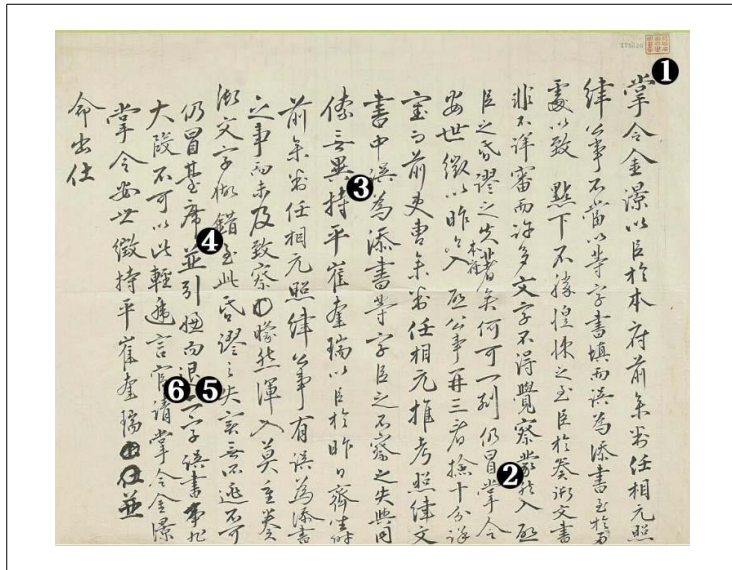 掌令金澋以臣於本府前參判任相元照
律公事不當以等字書填而誤為添書至於
處以致 點下不勝惶悚之至臣於奏御文書
非不詳審而許多文字不得覺察入 啓
臣之昏謬之失著矣何可一刻仍冒掌令
安世徵以昨入 啓公事再三看撿十分詳
而前吏曹參判任相元推考照律文
書中誤為添書等字臣之不察之失與同
僚無異持平崔奎瑞以臣於昨日齊坐時
前參判任相元照律公事有誤為添書
之事而未及致察矇然渾入莫重奏
御文字做錯至此昏謬之失實無所逃不可
仍冒臺席並引避而退一字誤書事非
大段不可以此輕遞言官請掌令金澋
掌令安世徵持平崔奎瑞並
命出仕
❶
❷
❸
❹
❻❺